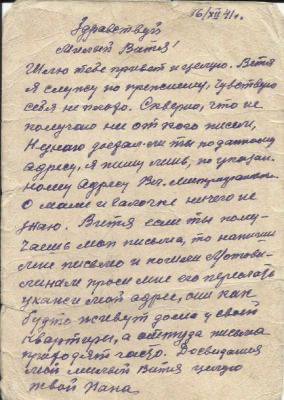 16/XII 41 г.
Здравствуй
Милый Витя!
Шлю тебе привет и целую. Витя
я служу по прежнему, чувствую
себя не плохо. Скверно, что не
получаю ни от кого писем,
Я пишу лишь, по указан
ному адресу
О маме и Галочке ничего не
знаю. Витя если ты полу-
чаешь мои письма, то напиши
мне письмо и пошли
проси мне его переслать
укажи мой адрес, они как
будто живут дома у своей
квартиры, а оттуда письма
приходят часто. Досвидания
мой милый Витя целую
твой Папа